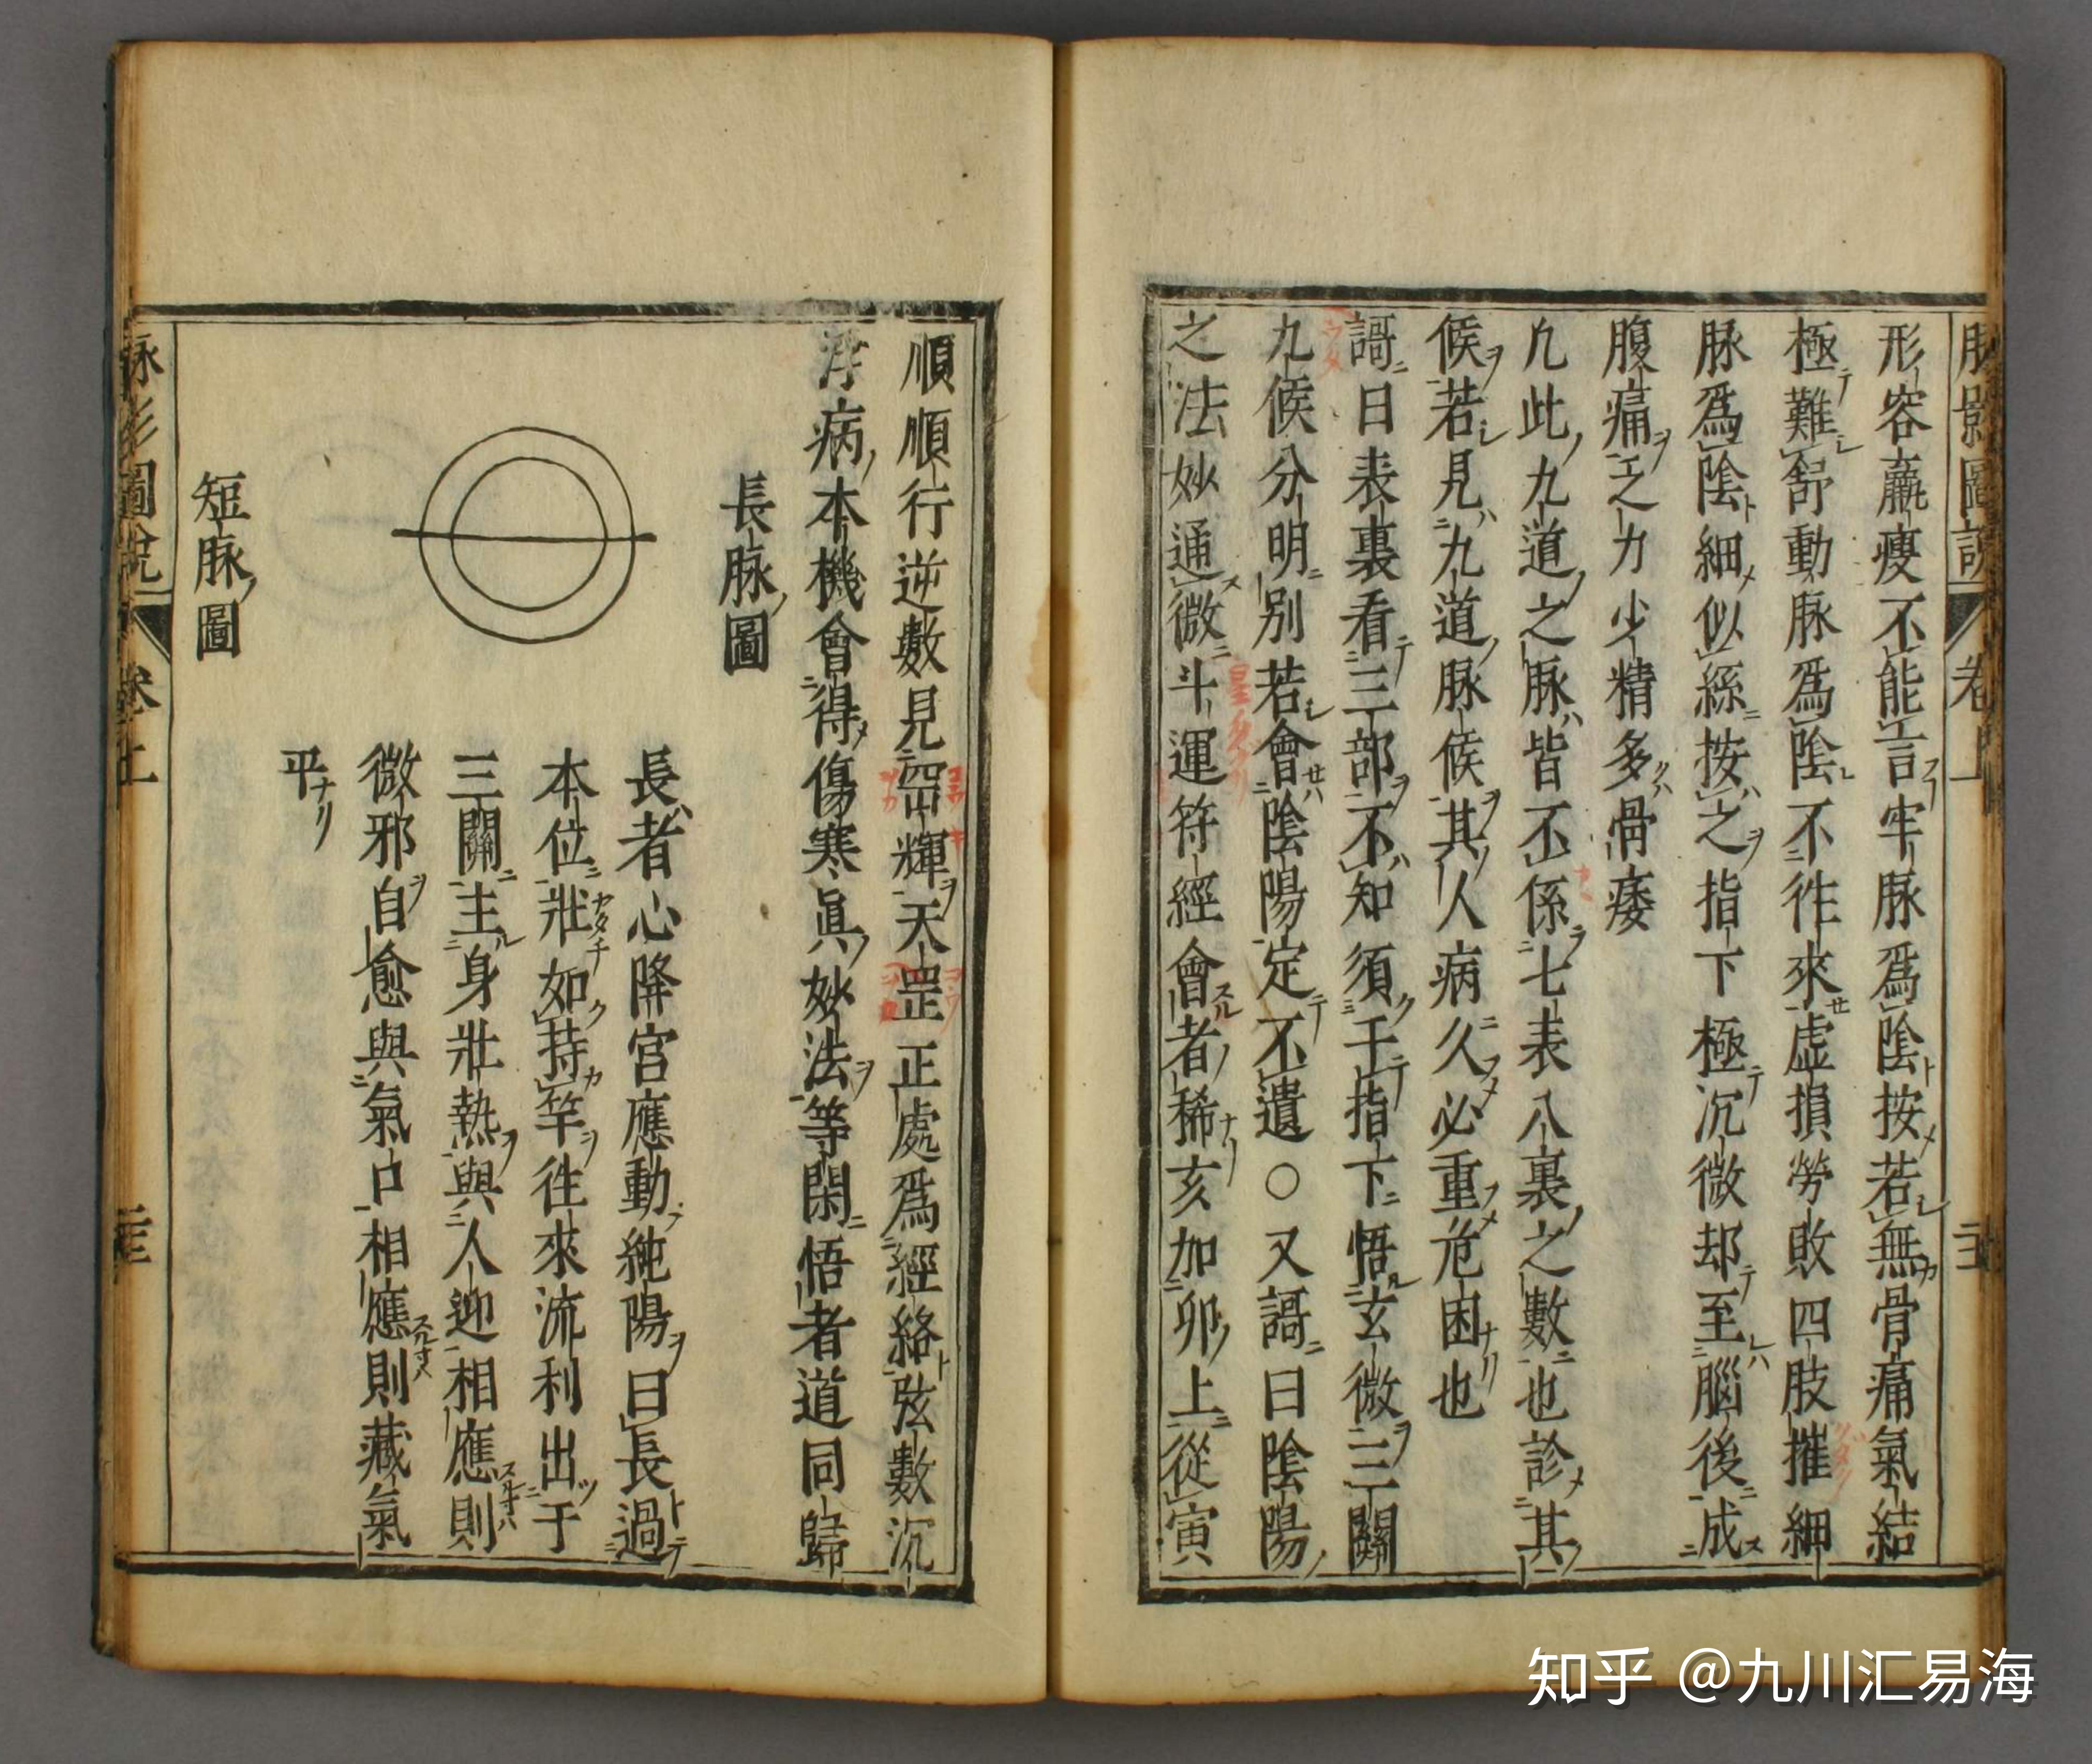 脉影圖說 卷上
形容羸瘦不能言牢脉爲陰按若無骨痛氣結
極難舒動脉爲陰不徃來虚損勞敗四肢摧細
脉爲陰細似絲按之指下極沉微却至腦後成
腹痛乏力少精多骨痿
凡此九道之脉皆不係七表八裏之數也診其
候若見九道脉候其人病久必重危困也
謌曰表裏看三部不知須于指下悟玄微三關
九候分明別若會陰陽定不遺○又謌曰陰陽
之法妙通微斗運符經會者稀亥加卯上從寅
順順行逆數見罡輝天罡正處爲經絡弦數沉
浮病本機會得傷寒眞妙法等閑悟者道同歸
長脉圖
長者心降宮應動純陽曰長過
本位壯如持竿徃來流利出于
三關主身壯熱與人迎相應則
微邪自愈與氣口相應則藏氣
平ナリ
短脉圖
脉影圖說 卷上
知乎 @九川汇易海